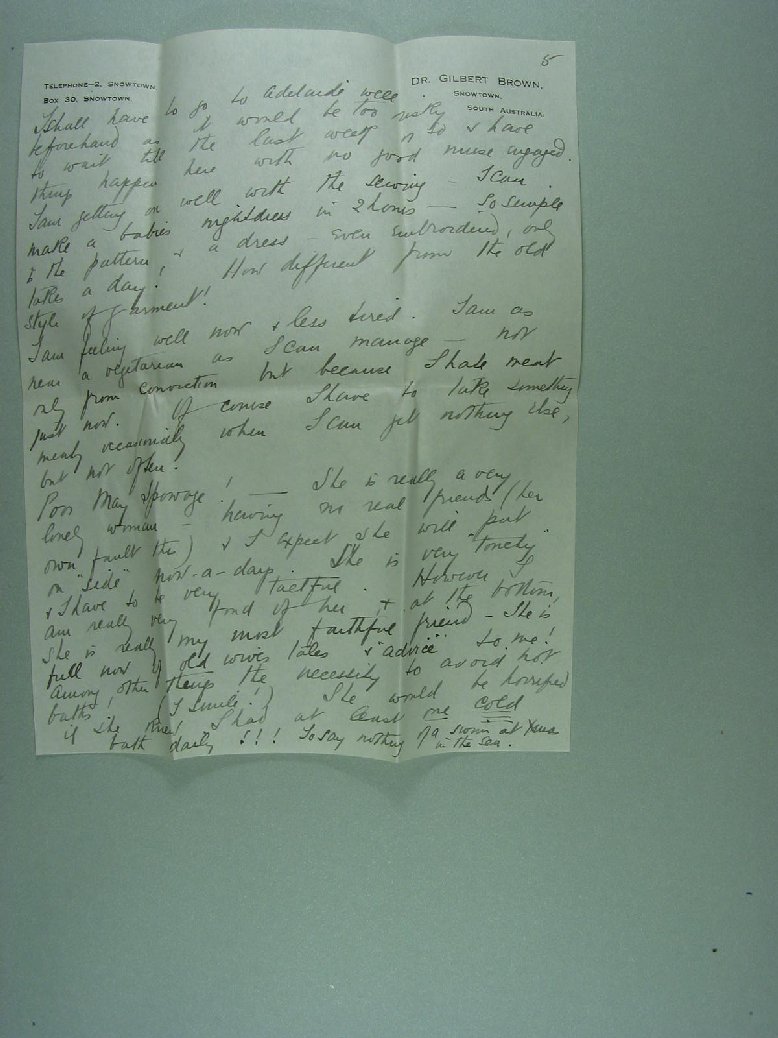 5
TELEPHONE—2, SNOWTOWN.
BOX 30, SNOWTOWN.
DR. GILBERT BROWN,
SNOWTOWN,
SOUTH AUSTRALIA.
I shall have to go to Adelaide well
beforehand as it would be too risky
to wait till the last week or so & have
things happen here with no good nurse engaged.
I am getting on well with the sewing — I can
make a babies nightdress in 2 hours — so simple
is the pattern, & a dress — even embroidered, only
takes a day! How different from the old
style of garment!
I am feeling well now & less tired. I am as
near a vegetarian as I can manage — not
only from conviction but because I hate meat
just now. Of course I have to take something
meaty occasionally when I can get nothing else,
but not often.
Poor May Spowage! — She is really a very
lonely woman — having no real friends (her
own fault tho) & I expect she will "put
on "side" now-a-days. She is very "touchy"
& I have to be very tactful. However I
am really very fond of her, & at the bottom,
she is really my most faithful friend — She is
full now of old wives tales & "advice" to me!
Among other things the necessity to avoid hot
baths! (I smile!) She would be horrified
if she knew I had at least one cold
bath daily &!! To say nothing of a swim at Xmas
in the sea.